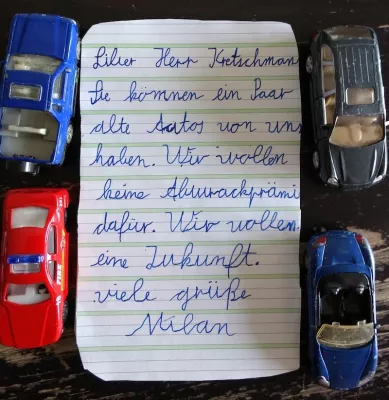 Lieber Herr Kretschman
Sie kömnen ein Paar
alte Autos von uns
haben. Wir wollen
keine Abwrackprämi
dafür. Wir wollen
eine Zukunft.
viele grüße
Milan